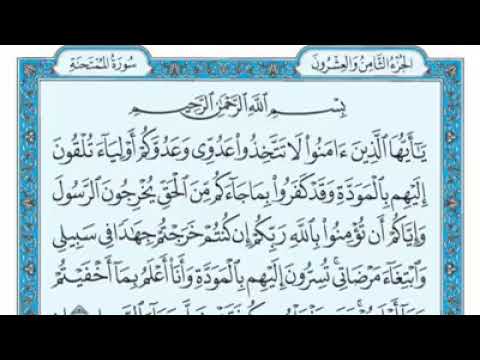 الجزء الثامن والعشرون
سورة الممتحنة
بِسْمِ اللَّهِ الرَّحْمَٰنِ الرَّحِيمِ
يَا أَيُّهَا الَّذِينَ ءَامَنُوا لَا تَتَّخِذُوا عَدُوِّي وَعَدُوَّكُمْ أَوْلِيَاءَ تُلْقُونَ
إِلَيْهِم بِالْمَوَدَّةِ وَقَدْ كَفَرُوا بِمَا جَاءَكُم مِّنَ الْحَقِّ يُخْرِجُونَ الرَّسُولَ
وَإِيَّاكُمْ أَن تُؤْمِنُوا بِاللَّهِ رَبِّكُمْ إِن كُنتُمْ خَرَجْتُمْ جِهَادًا فِي سَبِيلِي
وَابْتِغَاءَ مَرْضَاتِي تُسِرُّونَ إِلَيْهِم بِالْمَوَدَّةِ وَأَنَا أَعْلَمُ بِمَا أَخْفَيْتُمْ